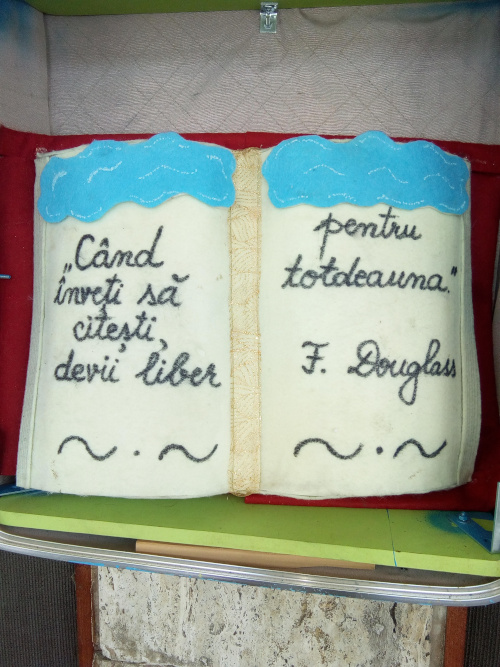 „Când
înveți să
citești,
devii liber
pentru
totdeauna."
F. Douglass